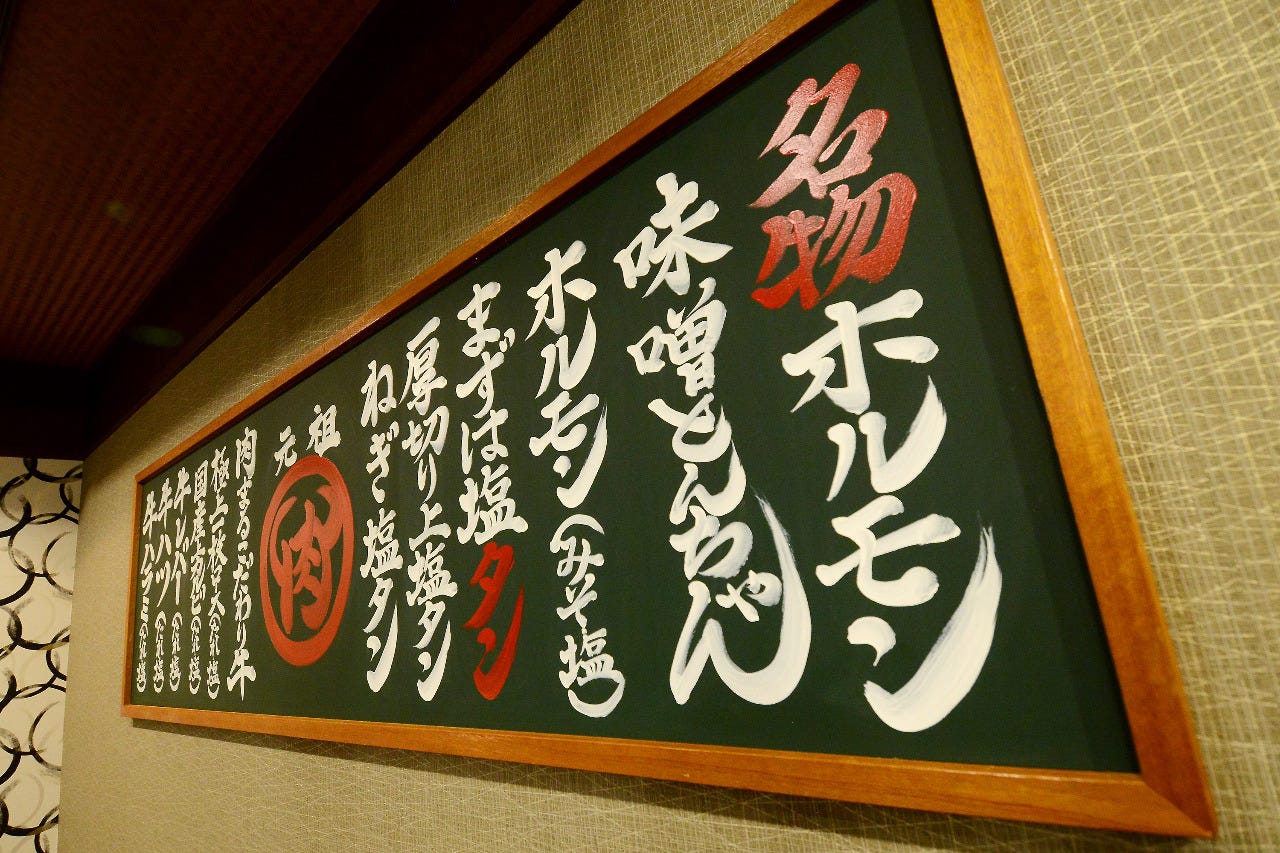 名物ホルモン
味噌とんちゃん
ホルモン(みそ塩)
まずは塩タン
厚切り上塩タン
ねぎ塩タン
元祖
肉
肉まるごだわり牛
極上一枚ロース(たれ塩)
国産カルビ(たれ塩)
牛レバー(たれ塩)
牛ハツ(たれ塩)
牛ハラミ(たれ塩)